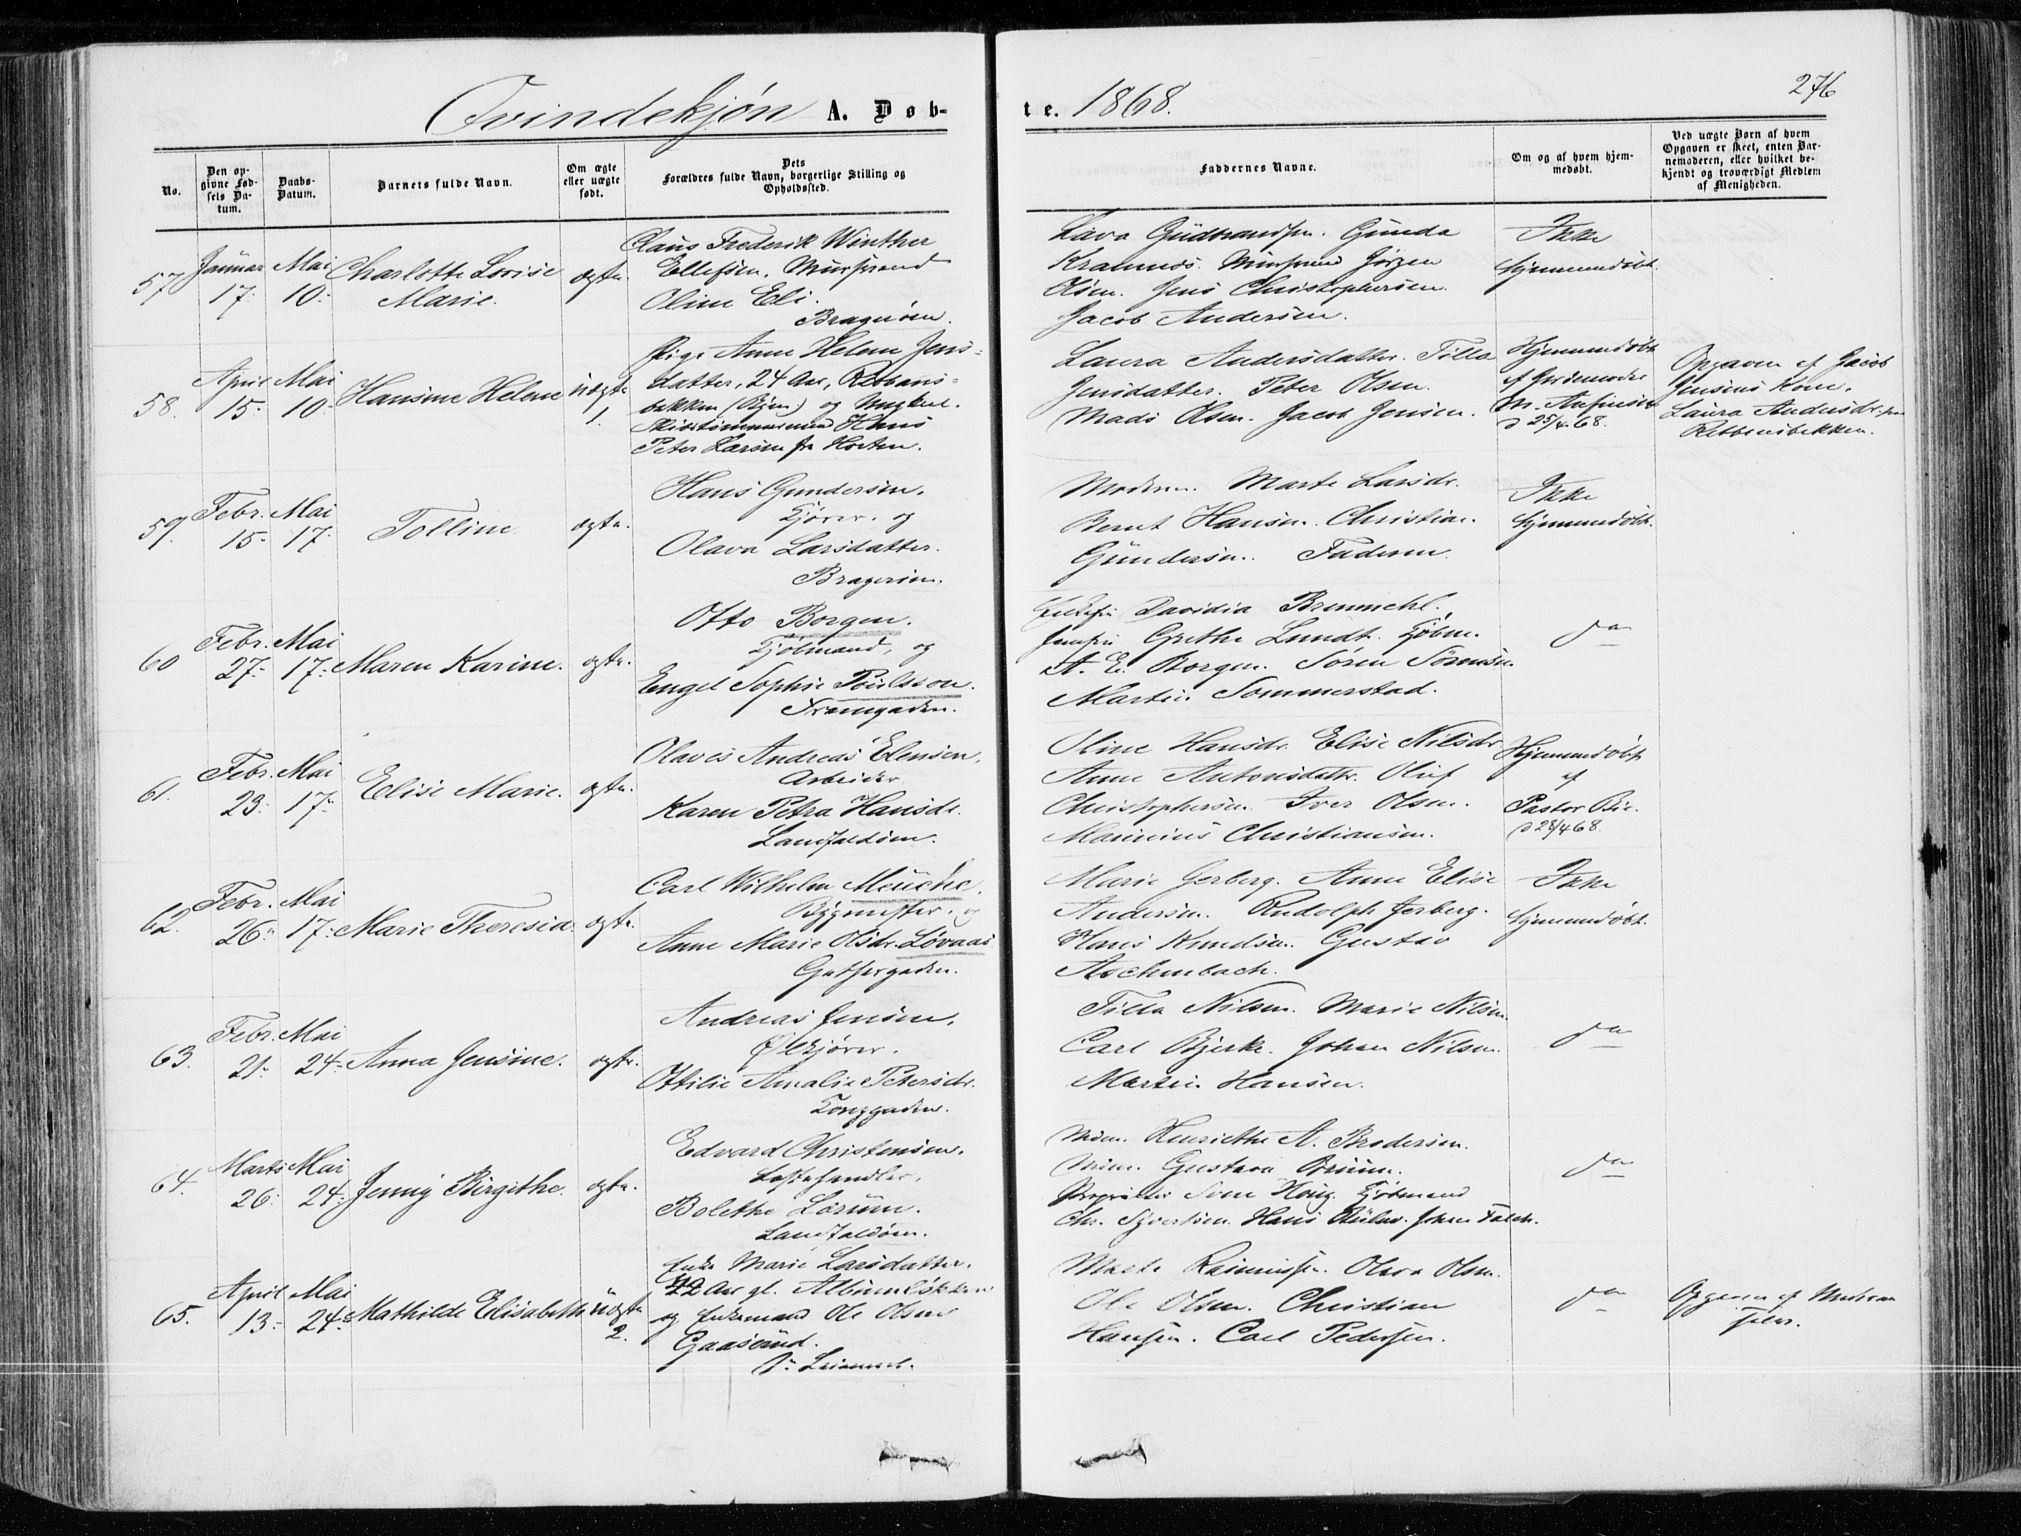 276
Qvindekjøn A. Døb-
te. 1868.
No.
Den op-
givne Fød-
sels Da-
tum.
Daabs-
Datum.
Barnets fulde Navn.
Om ægte
eller uægte
født.
Dets
Forældres fulde Navn, borgerlige Stilling og
Opholdssted.
Faddernes Navne.
Om og af hvem hjem-
medøbt.
Ved uægte Børn af hvem
Opgaven er skeet, enten Bar-
nemoderen, eller hvilket be-
kjendt og troværdigt Medlem
af Menigheden.
57.
Januar
17.
Mai
10.
Charlotte Lovise
Marie.
ægte
Claus Frederik Winther
Ellefsen, Mursvend
Oline Eli.
Bragernæs.
Lava Gudbrandsen. Gunda
Murmand Jørgen
Olsen. Jens Christophersen.
Jacob Andersen.
Ikke
hjemmedøbt.
58.
April
15.
Mai
10.
Hansine Helene
uægte
1.
Pige Anne Helene Jens-
datter, 24 Aar, Rebbans-
bakken og Ungkarl.
Skibstømmermand Hans
Peter Larsen fra Horten.
Laura Andersdatter. Tilla
Jensdatter. Peter Olsen.
Mads Olsen. Jacob Jensen.
Hjemmedøbt
af Gjordemoder
d 25/4 68.
Opgaven af Jacob
Jensens Kone,
Laura Andersdr.
Rebbansbakken.
59.
Febr.
15.
Mai
17.
Tolline
ægte.
Hans Gundersen.
Kjører. og
Olava Larsdatter.
Bragernæs.
Moderen. Marte Larsdr.
Bernt Hansen. Christian
Gundersen. Faderen.
Ikke
hjemmedøbt.
60
Febr.
27.
Mai
17.
Maren Karine.
ægte.
Otto Borgen.
Kjøbmand, og
Engel Sophie Poulsson.
Tramgaden.
Davidia Bremmehl.
Grethe Lundt. Kjøbm.
A. E. Borgen. Søren Sørensen.
Martin Sommerstad.
do
61.
Febr.
23.
Mai
17.
Elise Marie.
ægte.
Olaves Andreas Elensen.
Arbeider
Karen Petra Hansdr.
Landfaldøen.
Oline Hansdr. Elise Nilsdr.
Anne Antonsdatter. Oluf
Christophersen. Iver Olsen.
Christiansen.
Hjemmedøbt
af
Pastor Bie.
d 28/4 68.
62.
Febr.
26.
Mai
17.
Marie Theresia.
ægte.
Carl Wilhelm Meuche.
Bygmester. og
Anne Marie Olsdr. Løvaas
Marie Gerberg. Anne Elise
Andersen. Rudolph Gerberg.
Hans Knudsen. Gustav
Aschenbach.
Ikke
hjemmedøbt.
63.
Febr.
21.
Mai
24.
Anna Jensine.
ægte.
Andreas Jensen.
Ølkjører.
Ottilie Amalie Petersdr.
Konggaden.
Tilla Nilsen. Marie Nilsen.
Carl Bjerke. Johan Nilsen.
Martin Hansen.
do
64.
Marts
26.
Mai
24.
Jenny Birgithe.
ægte.
Edvard Christensen.
Bolethe Lorum.
Landfaldøen.
Mdm. Henriette A. Brodersen.
Mdm. Gustava
Proprietær Houg. Kjøbmand
Chr. Syvertsen. Hans Johan Falch.
do
65.
April
13.
Mai
24.
Mathilde Elisabeth
uægte
2.
Enke Marie Larsdatter.
42 Aar gl. Albumløkken
og Enkemand Ole Olsen
Gaasrud.
Marte Olava Olsen.
Ole Olsen. Christian
Hansen. Carl Pedersen.
do
Opgaven af Moderen
selv.